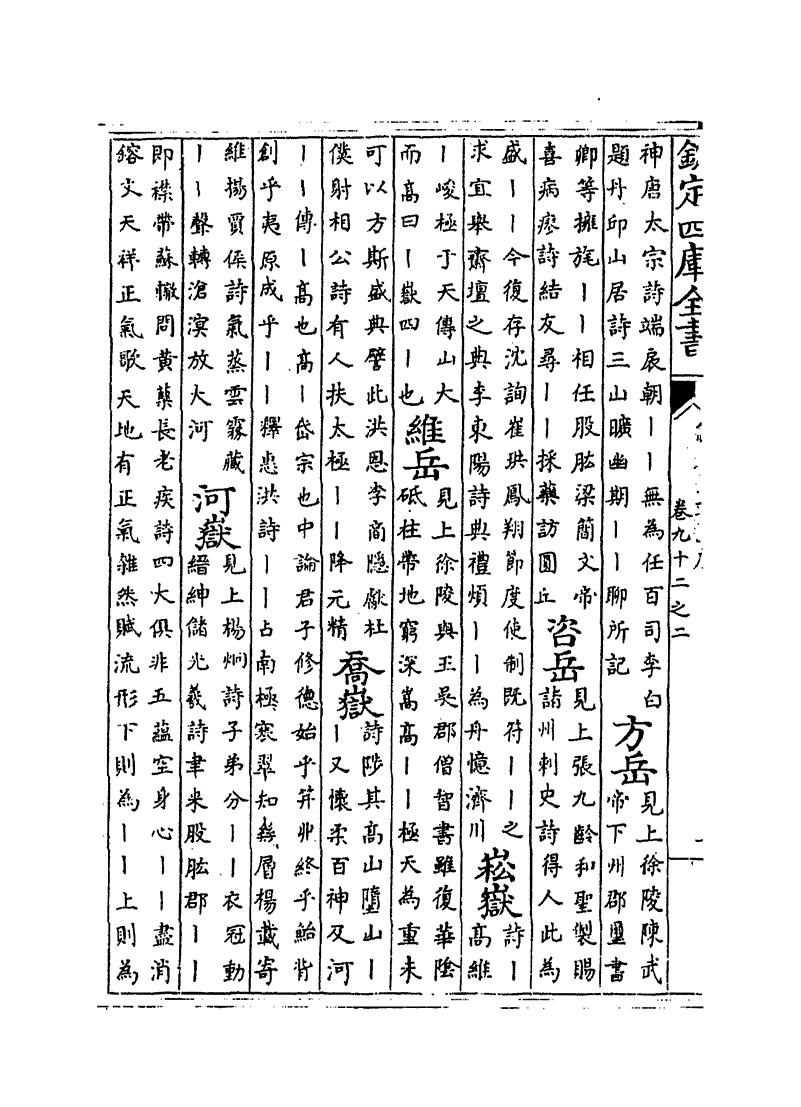 欽定四庫全書
卷九十二之二
神唐太宗詩端扆朝丨丨無為任百司李白
題丹邱山居詩三山曠幽期丨丨聊所記
方岳
見上徐陵陳武
帝下州郡璽書
卿等擁旄丨丨相任股肱梁簡文帝
喜病瘳詩結友尋丨丨採藥訪圓丘
咨岳
見上張九齡和聖製賜
諸州刺史詩得人此為
盛丨丨今復存沈詢崔珙鳳翔節度使制既符丨丨之
求宜舉齋壇之典李東陽詩典禮煩丨丨為舟憶濟川
崧嶽
詩丨
高維
丨峻極于天傳山大
而高曰丨嶽四丨也
維岳
見上徐陵與王吳郡僧智書雖復華陰
砥柱帶地窮深嵩高丨丨極天為重未
可以方斯盛典譬此洪恩李商隱獻杜
僕射相公詩有人扶太極丨丨降元精
喬嶽
詩陟其高山墮山丨
丨又懷柔百神及河
丨丨傳丨高也高丨岱宗也中論君子修德始乎笄丱終乎鮐背
創乎夷原成乎丨丨釋惠洪詩丨丨占南極寒翠知幾層楊載寄
維揚賈侯詩氣蒸雲霧藏
丨丨聲轉滄溟放大河
河嶽
見上楊炯詩子弟分丨丨衣冠動
縉紳儲光羲詩聿來股肱郡丨丨
即襟帶蘇轍問黃蘗長老疾詩四大俱非五蘊空身心丨丨盡消
鎔文天祥正氣歌天地有正氣雜然賦流形下則為丨丨上則為